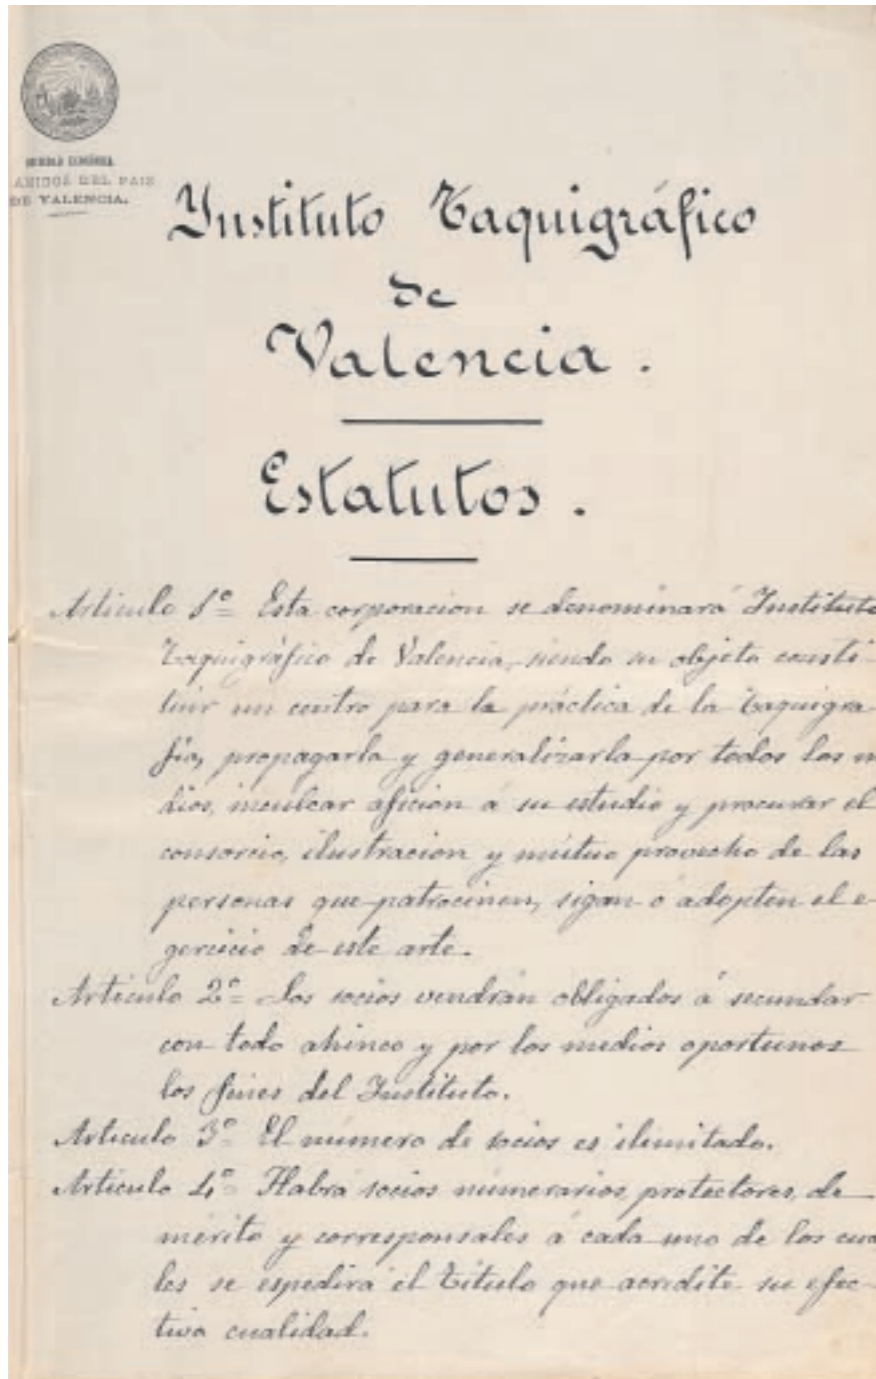 SOCIEDAD ECONÓMICA
AMIGOS DEL PAIS
DE VALENCIA.
Instituto Taquigráfico
de
Valencia.
Estatutos.
Artículo 1º Esta corporacion se denominará Instituto
Taquigráfico de Valencia, siendo su objeto consti-
tuir un centro para la práctica de la taquigra-
fía, propagarla y generalizarla por todos los m
dios, inculcar aficion á su estudio y procurar el
consorcio, ilustracion y mútuo provecho de las
personas que patrocinen, sigan ó adopten el e-
gercicio de este arte.
Artículo 2º Los socios vendrán obligados á secundar
con todo ahinco y por los medios oportunos
los fines del Instituto.
Artículo 3º El número de socios es ilimitado.
Artículo 4º Habrá socios númerarios, protectores, de
mérito y corresponsales á cada uno de los cua
les se espedirá el Título que acredite su efec-
tiva cualidad.